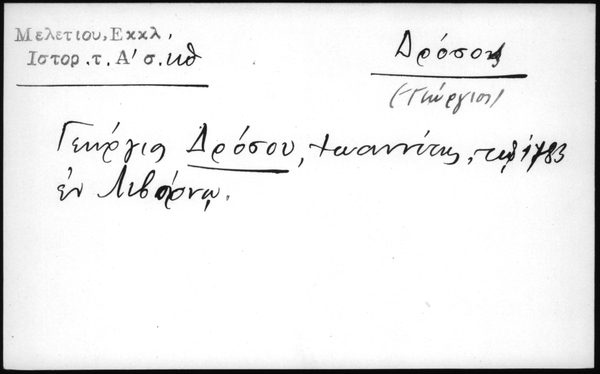 Μελετίου, Εκκλ,
Ιστορ.τ.Α' σ.κθ
Δρόσος
(Γεώργιος)
Γεώργιος Δρόσου, Ιωαννίτης, τῷ 1783
ἐν Λιβόρνῳ.